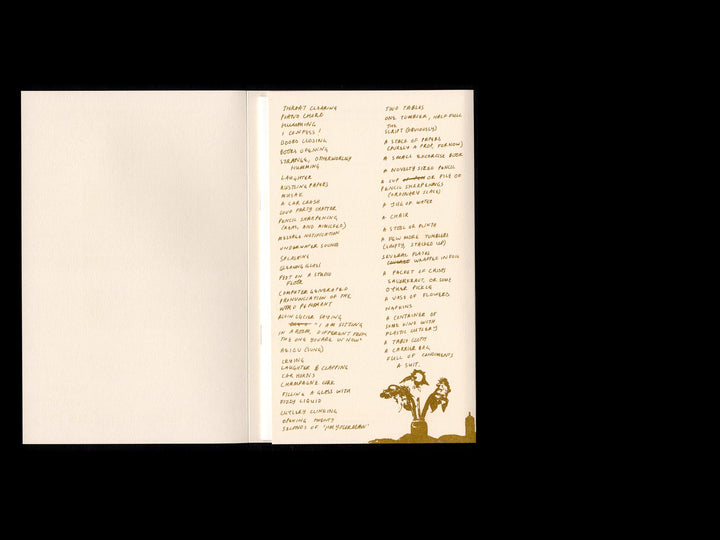 THROAT CLEARING
PIANO CHORD
HUMMING
I CONFESS!
DOORS CLOSING
DOORS OPENING
STRANGE, OTHERWORLDLY
HUMMING
LAUGHTER
RUSTLING PAPERS
MUZAK
A CAR CRASH
PARTY CHATTER
PENCIL SHARPENING
(REAL AND MIMICKED)
MESSAGE NOTIFICATION
UNDERWATER SOUND
SPLASHING
CLEARING GLASS
FEET ON A STUDIO
FLOOR
COMPUTER GENERATED
PRONUNCIATION OF THE
WORD PENCHANT
ALVIN LUCIER SAYING
"I AM SITTING
IN A ROOM DIFFERENT FROM
THE ONE YOU ARE IN NOW"
(SUNG)
CRYING
LAUGHTER & CLAPPING
CAR HORNS
CHAMPAGNE CORK
FILLING A GLASS WITH
FIZZY LIQUID
CUTLERY CLINKING
OPENING TWENTY
SECONDS OF
TWO TABLES
ONE TUMBLER, HALF FULL
THE
SCRIPT (OBVIOUSLY)
A STACK OF PAPERS
(PURELY A PROP, FOR NOW)
A SMALL EXCERCISE BOOK
A NOVELTY SIZED PENCIL
A CUP OR PILE OF
PENCIL SHARPENINGS
(ORDINARY SCALE)
A JUG OF WATER
A CHAIR
A STOOL OR PLINTH
A FEW MORE TUMBLERS
(EMPTY, STACKED UP)
SEVERAL PLATES
WRAPPED IN FOIL
A PACKET OF CRISPS
SAUERKRAUT, OR SOME
OTHER PICKLE
A VASE OF FLOWERS
NAPKINS
A CONTAINER OF
SOME KIND WITH
PLASTIC CUTLERY
A TABLE CLOTH
A CARRIER BAG
FULL OF CONDIMENTS
A SUIT.